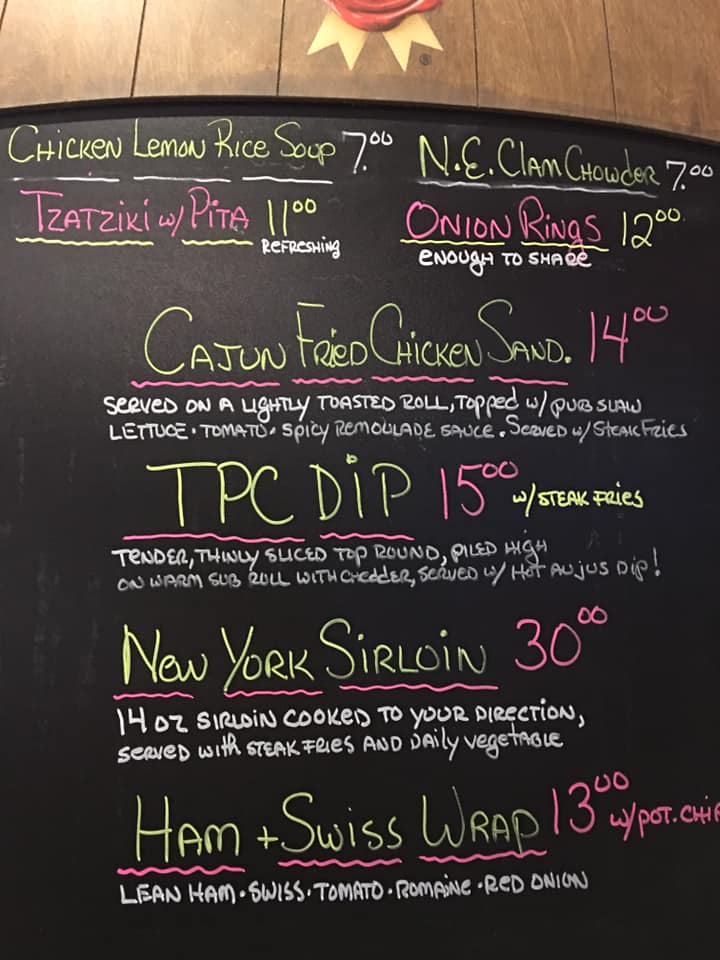 Chicken Lemon Rice Soup 7.00 N.E. Clam Chowder 7.00
Tzatziki w/ Pita 11.00 Onion Rings 12.00
Refreshing enough to share
Cajun Fried Chicken Sand. 14.00
Served on a lightly toasted roll, topped w/ pub slaw
Lettuce · Tomato · Spicy Remoulade Sauce. Served w/ Steak Fries
TPC Dip 15.00 w/ Steak Fries
Tender, thinly sliced top round, piled high
on warm sub roll with chedder, served w/ hot au jus dip!
New York Sirloin 30.00
14 oz sirloin cooked to your direction,
served with steak fries and daily vegetable
Ham + Swiss Wrap 13.00 w/ pot. chip
Lean Ham · Swiss · Tomato · Romaine · Red Onion